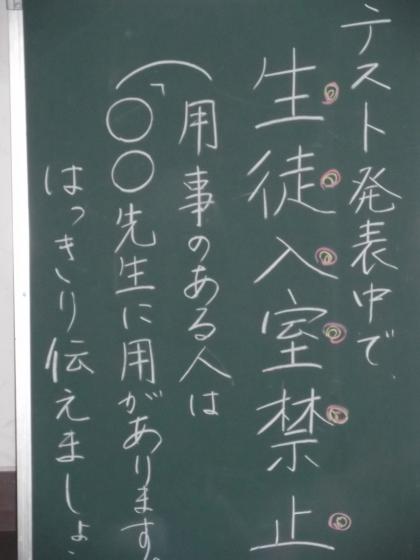 テスト発表中で、
生徒入室禁止
(用事のある人は
「○○先生に用があります。
はっきり伝えましょ